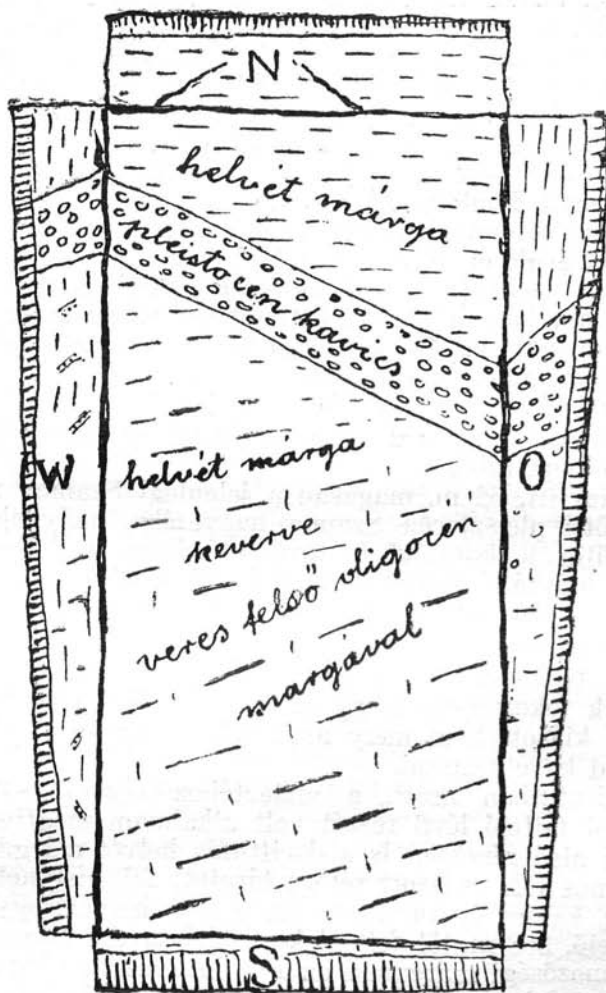 N
helvét márga
pleistocen kavics
W
helvét márga
O
keverve
veres felső oligocén
margával
S